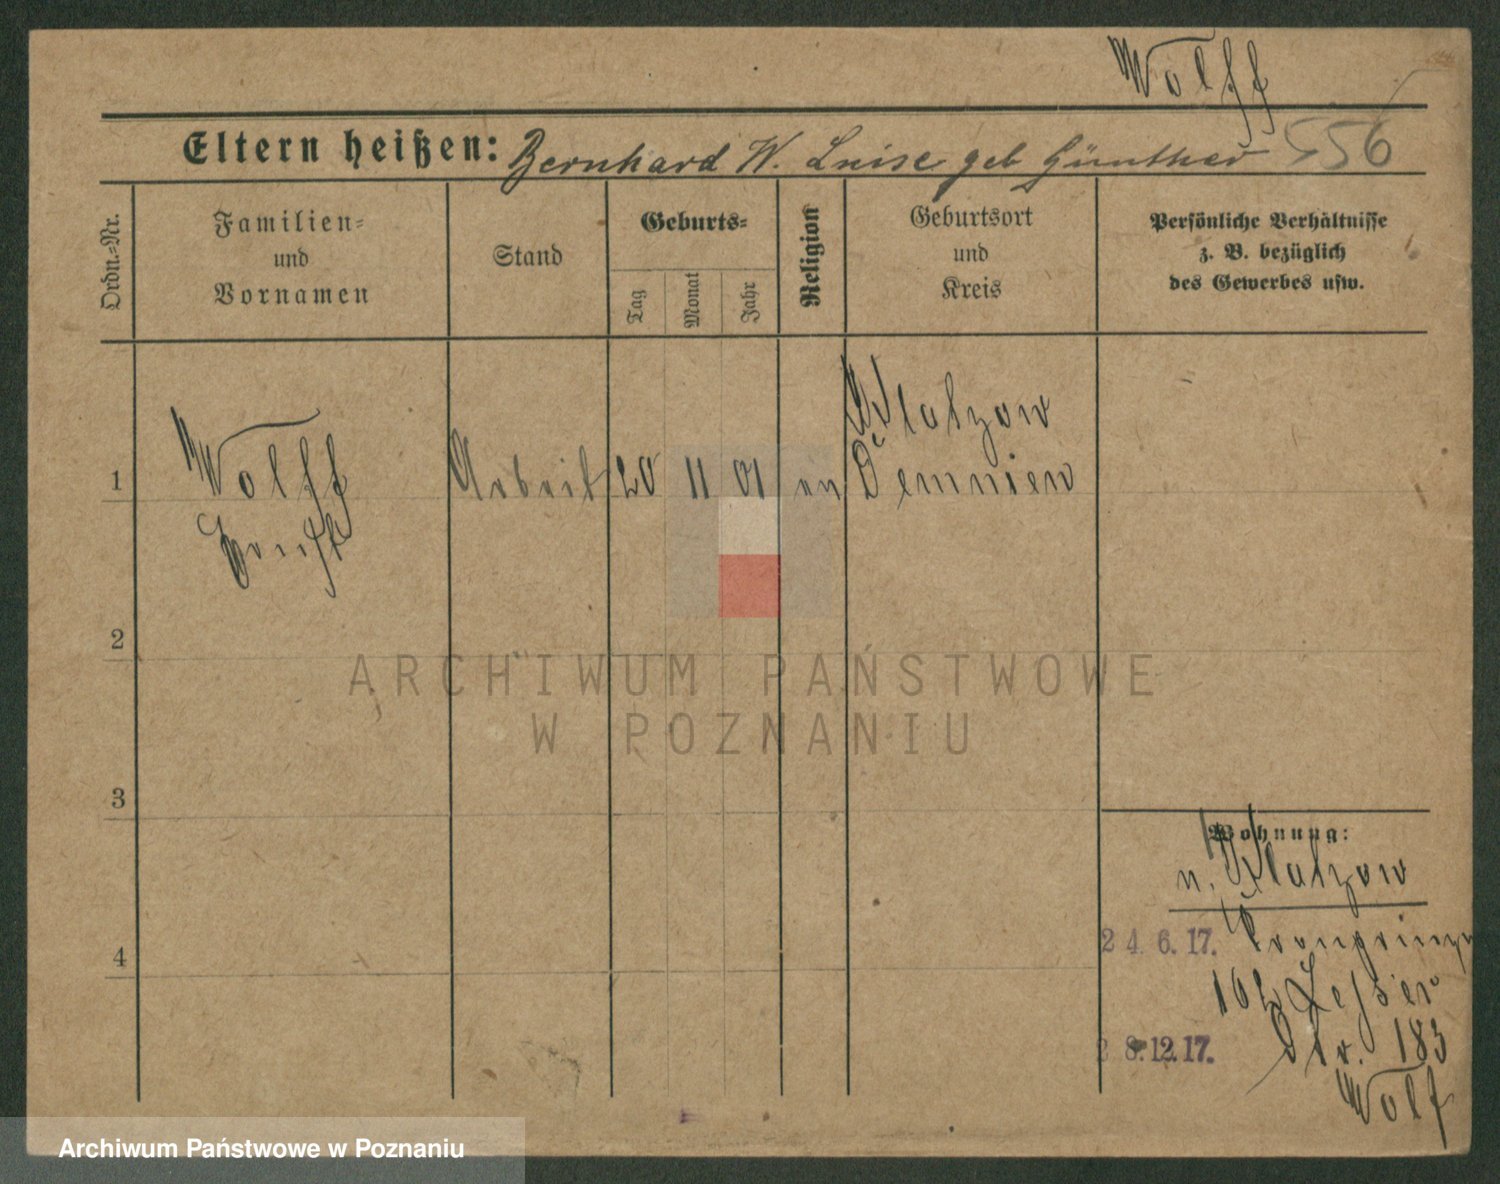 Wolff
Eltern heißen: Bernhard W. Luise geb Günther 556
Ordn.=Nr.
Familien=
und
Vornamen
Stand
Geburts=
Tag
Monat
Jahr
Religion
Geburtsort
und
Kreis
Persönliche Verhältnisse
z. B. bezüglich
des Gewerbes usw.
1
Wolff
Ernst
Arbeit
20
11
01
ev
Demmien
2
ARCHIWUM PAŃSTWOWE
W POZNANIU
3
Wohnung:
n.
4
24.6.17. Kronprinzen
102
28.12.17. Str. 183
Wolf
Archiwum Państwowe w Poznaniu